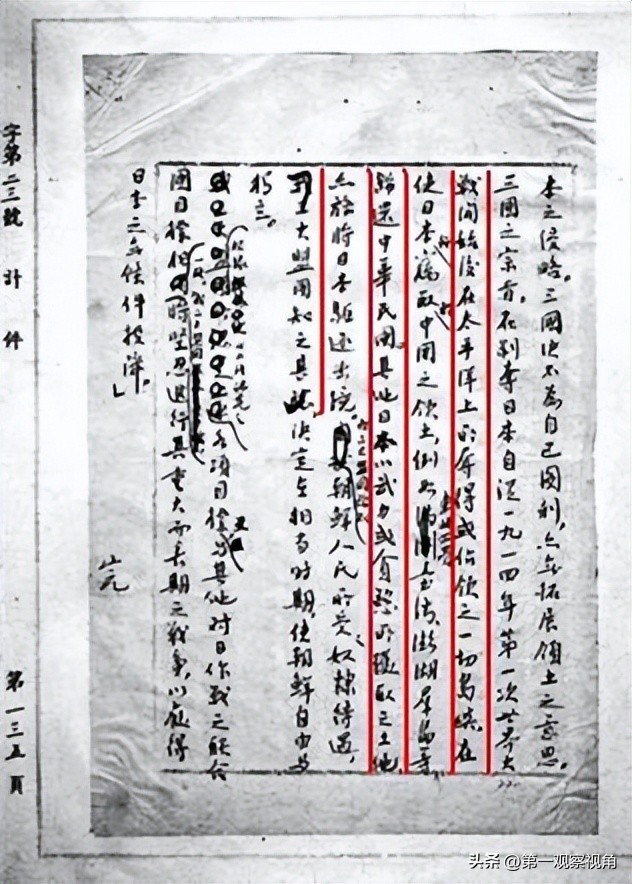 本之侵略。三國决不為自己圖利,亦無拓展領土之意思。
三國之宗旨,在剝奪日本自從一九一四年第一次世界大
戰開始後在太平洋上所奪得或佔領之一切島嶼,在
使日本竊取中國之領土,例如台灣,澎湖羣島等
歸還中華民國。其他日本以武力或貪慾所獲取之土地,
亦務將日本驅逐出境。朝鮮人民所受奴隸待遇,
大盟國知之甚稔 決定在相當時期,使朝鮮自由與
獨立。
各項目標與其他對日作戰之聯合
國目標堅忍進行其重大而長期之戰爭,以獲得
日本之無條件投降。」
字第二三號 計 件
第一三五頁
头条 @第一观察视角